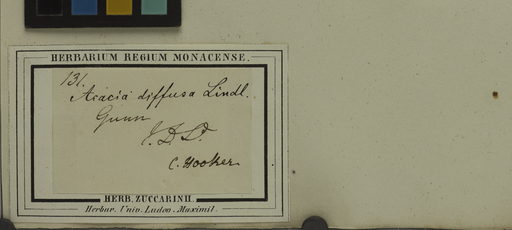 HERBARIUM REGIUM MONACENSE.
131.
Acacia diffusa Lindl.
Gunn
V. D. L.
C. Hooker
HERB. ZUCCARINII.
Herbar. Univ. Ludov. Maximil.